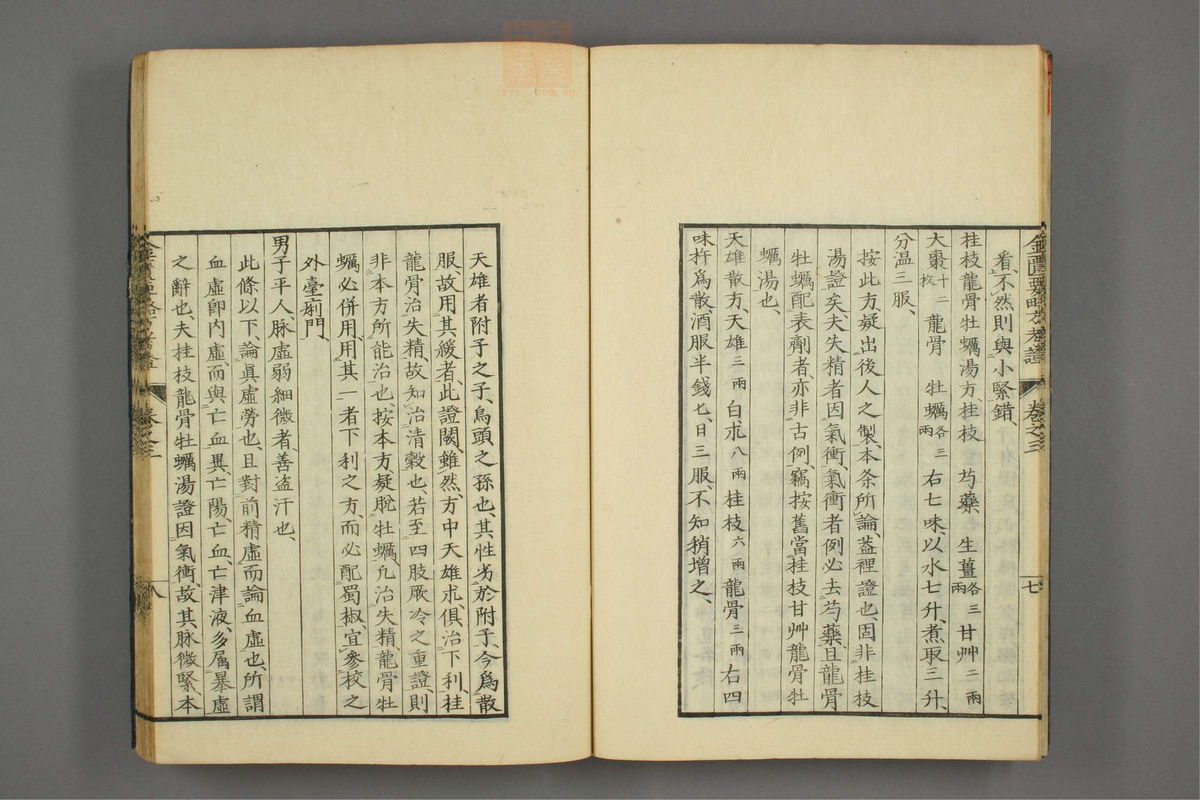 金匱要略方考證 卷之三 七
看、不然則與小緊錯、
桂枝龍骨牡蠣湯方、桂枝 芍藥 生薑各三兩 甘艸二兩
大棗十二枚 龍骨 牡蠣各三兩 右七味、以水七升、煮取三升、
分温三服、
按此方疑出後人之製、本条所論、葢裡證也、固非桂枝
湯證矣、夫失精者、因氣衝、氣衝者、例必去芍藥、且龍骨
牡蠣配表劑者、亦非古例、竊按舊當桂枝甘艸龍骨牡
蠣湯也、
天雄散方、天雄三兩 白朮八兩 桂枝六兩 龍骨三兩 右四
味杵爲散、酒服半錢匕、日三服、不知稍增之、
天雄者附子之子、烏頭之孫也、其性劣於附子、今爲散
服、故用其緩者、此證闕、雖然、方中天雄朮、俱治下利、桂
龍骨治失精、故知治清穀也、若至四肢厥冷之重證、則
非本方所能治也、按本方疑脫牡蠣、凢治失精龍骨牡
蠣必併用、用其一者下利之方、而必配蜀椒、宜參校之
外臺痢門、
男子平人脉虛弱細微者、善盜汗也、
此條以下、論眞虛勞也、且對前精虛而論血虛也、所謂
血虛卽内虛、而與亡血異、亡陽、亡血、亡津液、多屬暴虛
之辭也、夫桂枝龍骨牡蠣湯證因氣衝、故其脉微緊、本
卷之三 八